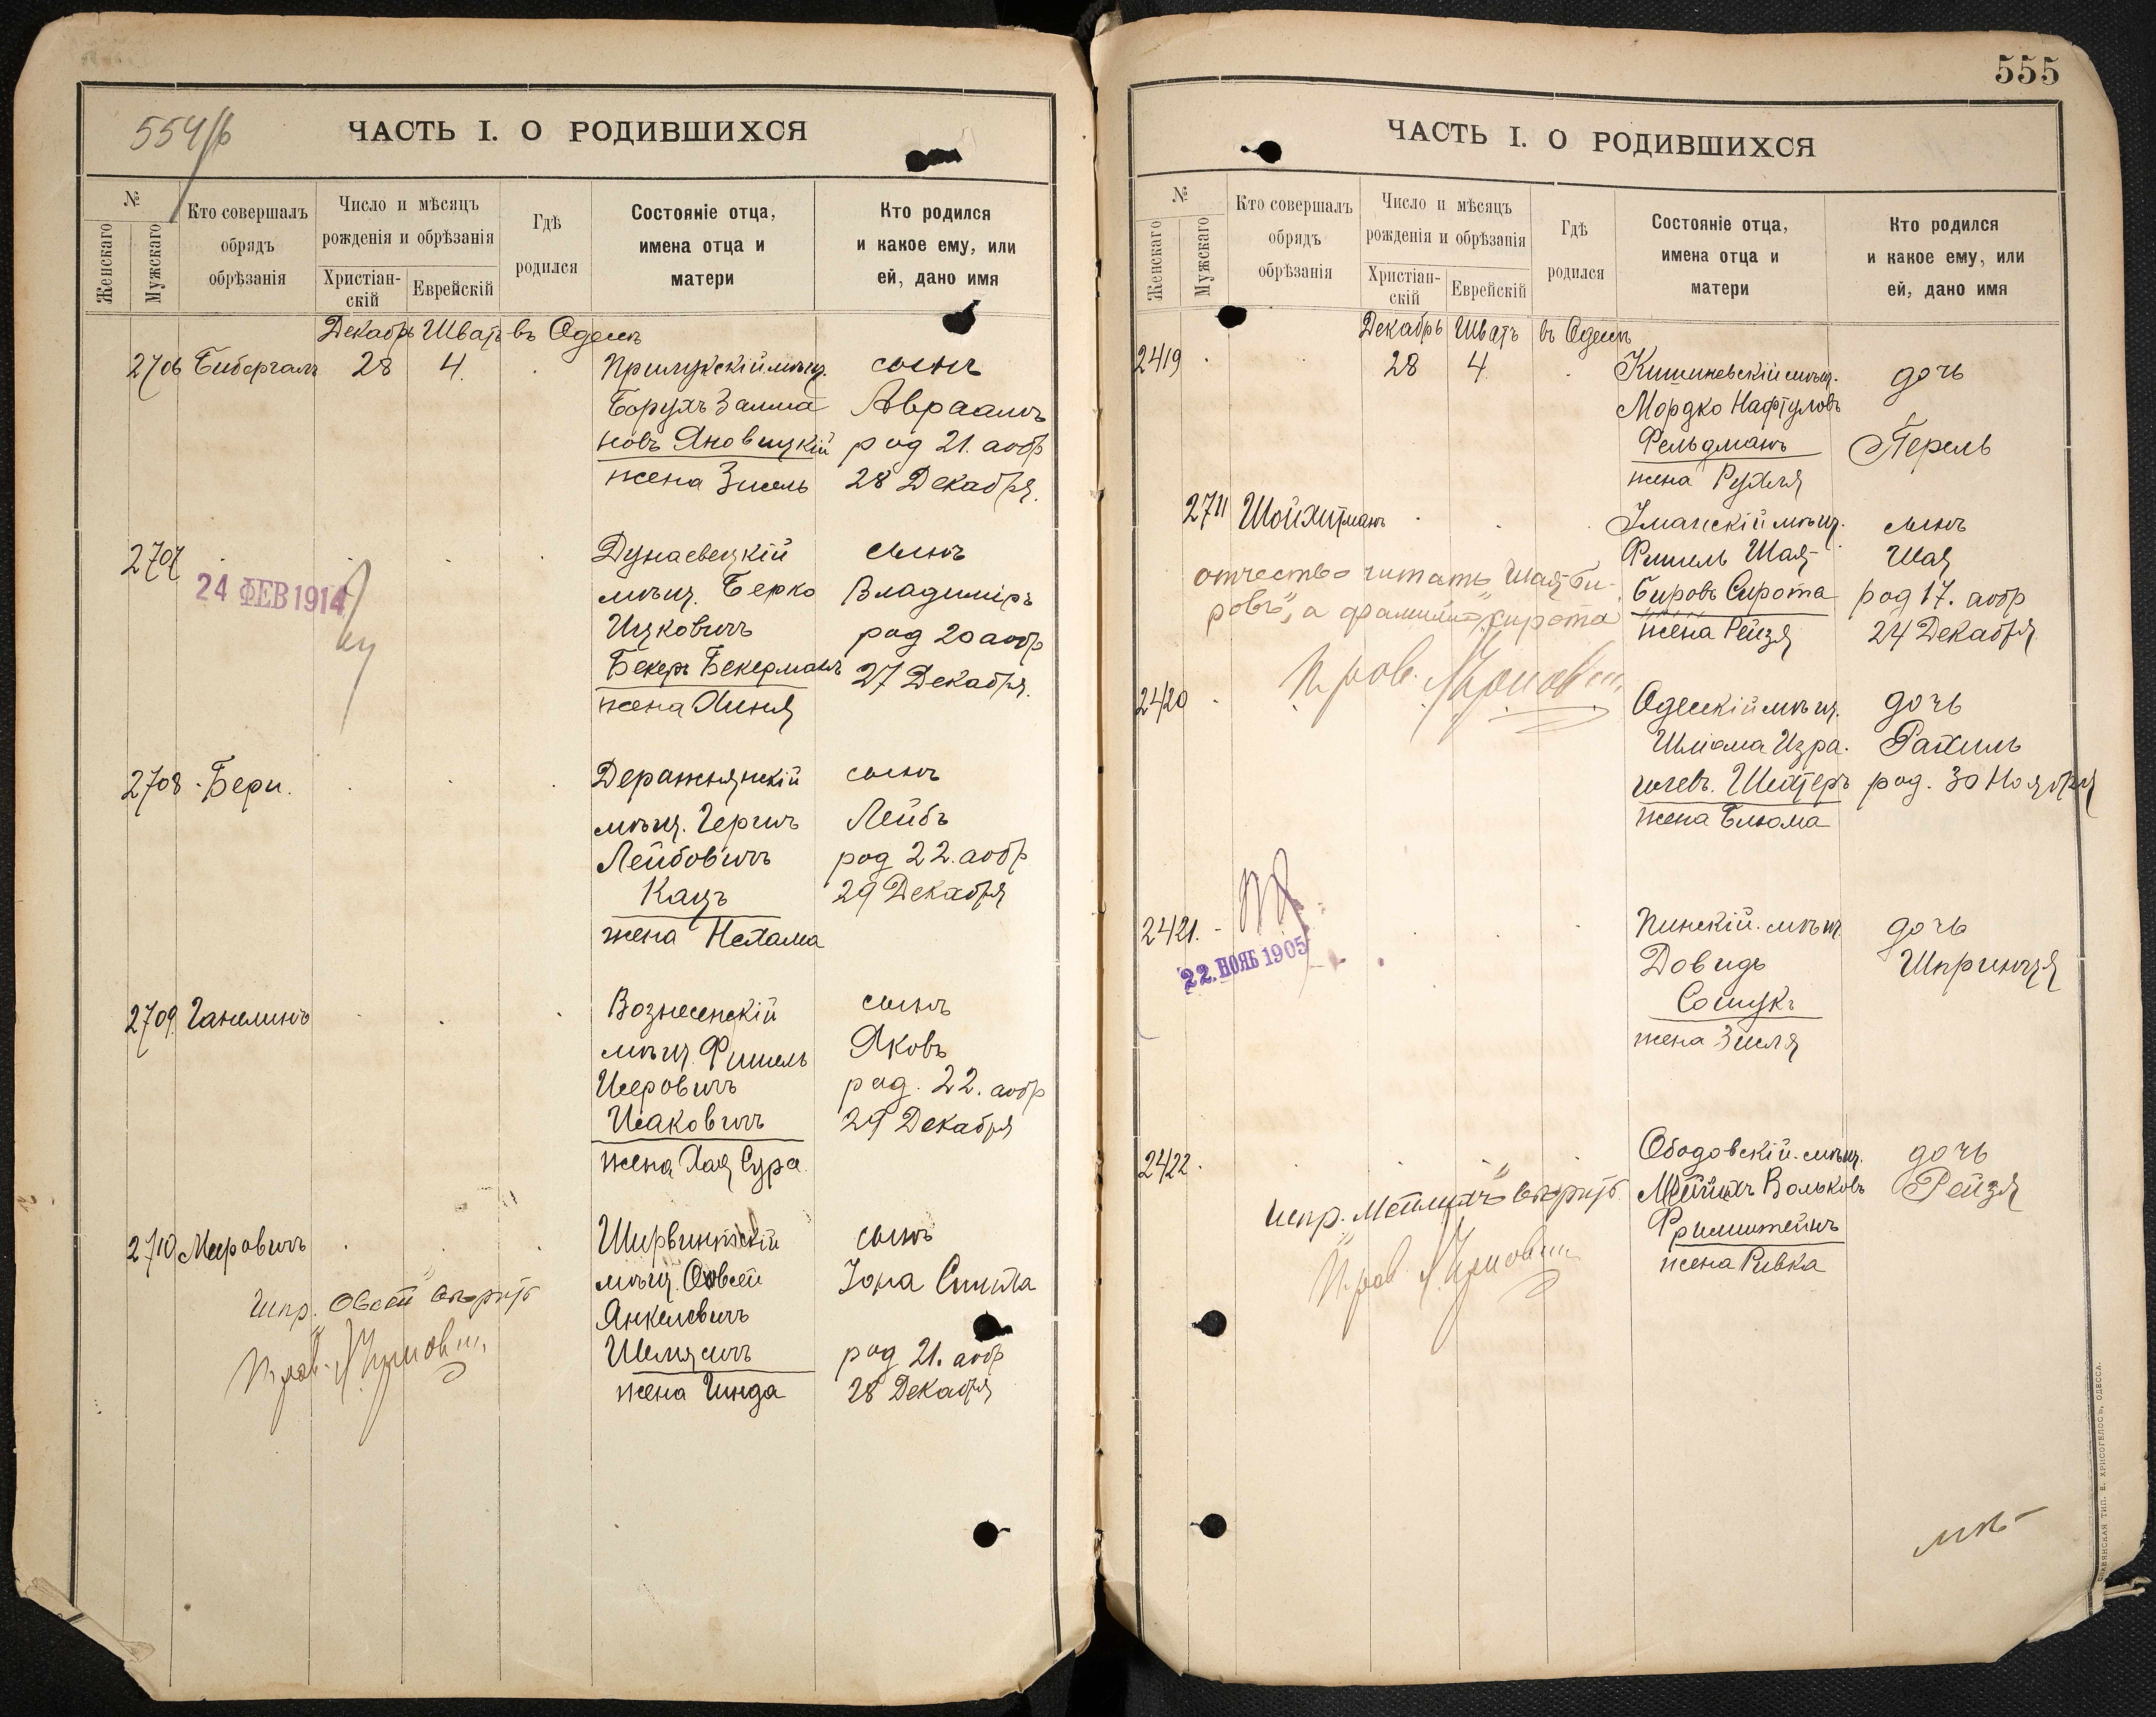 554/б
ЧАСТЬ I. О РОДИВШИХСЯ
№
Женскаго
Мужскаго
Кто совершалъ
обрядъ
обрѣзанія
Число и мѣсяцъ
рожденія и обрѣзанія
Христіан-
скій
Еврейскій
Гдѣ
родился
Состояніе отца,
имена отца и
матери
Кто родился
и какое ему, или
ей, дано имя
Декабрь Шватъ въ Одессѣ
2706 Бибергалъ 28 4 Прилукскій мѣщ. сынъ
Борухъ Залма Авраамъ
новъ Яновицкій род 21. аобр
жена Зисель 28 Декабря.
2707 Дунаевецкій сынъ
24 ФЕВ 1914
мѣщ. Берко Владиміръ
Ицковичъ род 20 аобр
Бекеръ Бекерманъ 27 Декабря.
жена Хиня
2708 Бери. Деражнянскій сынъ
мѣщ. Герши Лейбъ
Лейбовичъ род 22. аобр
Кацъ 29 Декабря
жена Нехама
2709 Ганелинъ Вознесенскій сынъ
мѣщ. Фишель Яковъ
Исеровичъ род. 22. аобр
Исаковичъ 29 Декабря
жена Хая Сура
2710 Мееровичъ Ширвинтскій сынъ
мѣщ. Овсей Іона Симха
испр. "Овсей" вѣрить
Янкелевичъ
Шемясичъ род 21. аобр
жена Гинда 28 Декабря
555
ЧАСТЬ I. О РОДИВШИХСЯ
№
Женскаго
Мужскаго
Кто совершалъ
обрядъ
обрѣзанія
Число и мѣсяцъ
рожденія и обрѣзанія
Христіан-
скій
Еврейскій
Гдѣ
родился
Состояніе отца,
имена отца и
матери
Кто родился
и какое ему, или
ей, дано имя
Декабрь Шватъ въ Одессѣ
2419 28 4 Кишиневскій мѣщ. дочь
Мордко Нафтуловъ
Фельдманъ Перель
жена Рухля
2711 Шойхитманъ Уманскій мѣщ. сынъ
Фишель Шая- Шая
отчество читать "Шая-Би-
ровъ", а фамилію "Сирота"
Бировъ Сирота род 17. аобр
жена Рейзя 24 Декабря
2420 Одесскій мѣщ. дочь
Шлiома Изра- Рахиль
илевъ. Шехтеръ род. 30 Ноября
жена Блюма
2421. Пинскій мѣщ. дочь
22. НОЯБ 1905
Довидъ Шпринця
Сошукъ
жена Зисля
2422 Ободовскій мѣщ. дочь
испр. "Мейлихъ" вѣрить Мейлихъ Вольковъ Рейзя
Фримштейнъ
жена Ривка
СЛАВЯНСКАЯ ТИП. Е. ХРИСОГЕЛОСЪ, ОДЕССА.